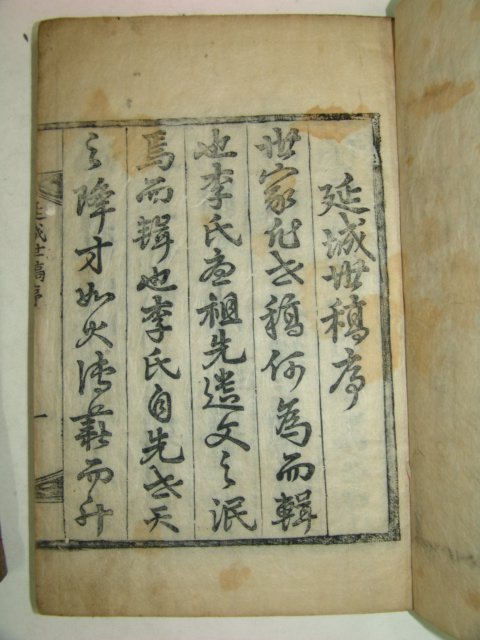 延城世稿序
世家者稿何為而輯
也李氏祖先遺文之泯
焉而輯也李氏自先世天
之降才如火傳薪而升
延城世稿序 一